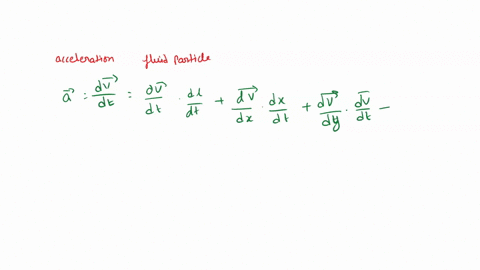 acceleration fluid particle
\vec{a} = \frac{d\vec{v}}{dt} = \frac{d\vec{v}}{dt} \cdot \frac{dt}{dt} + \frac{d\vec{v}}{dx} \cdot \frac{dx}{dt} + \frac{d\vec{v}}{dy} \cdot \frac{dv}{dt} -